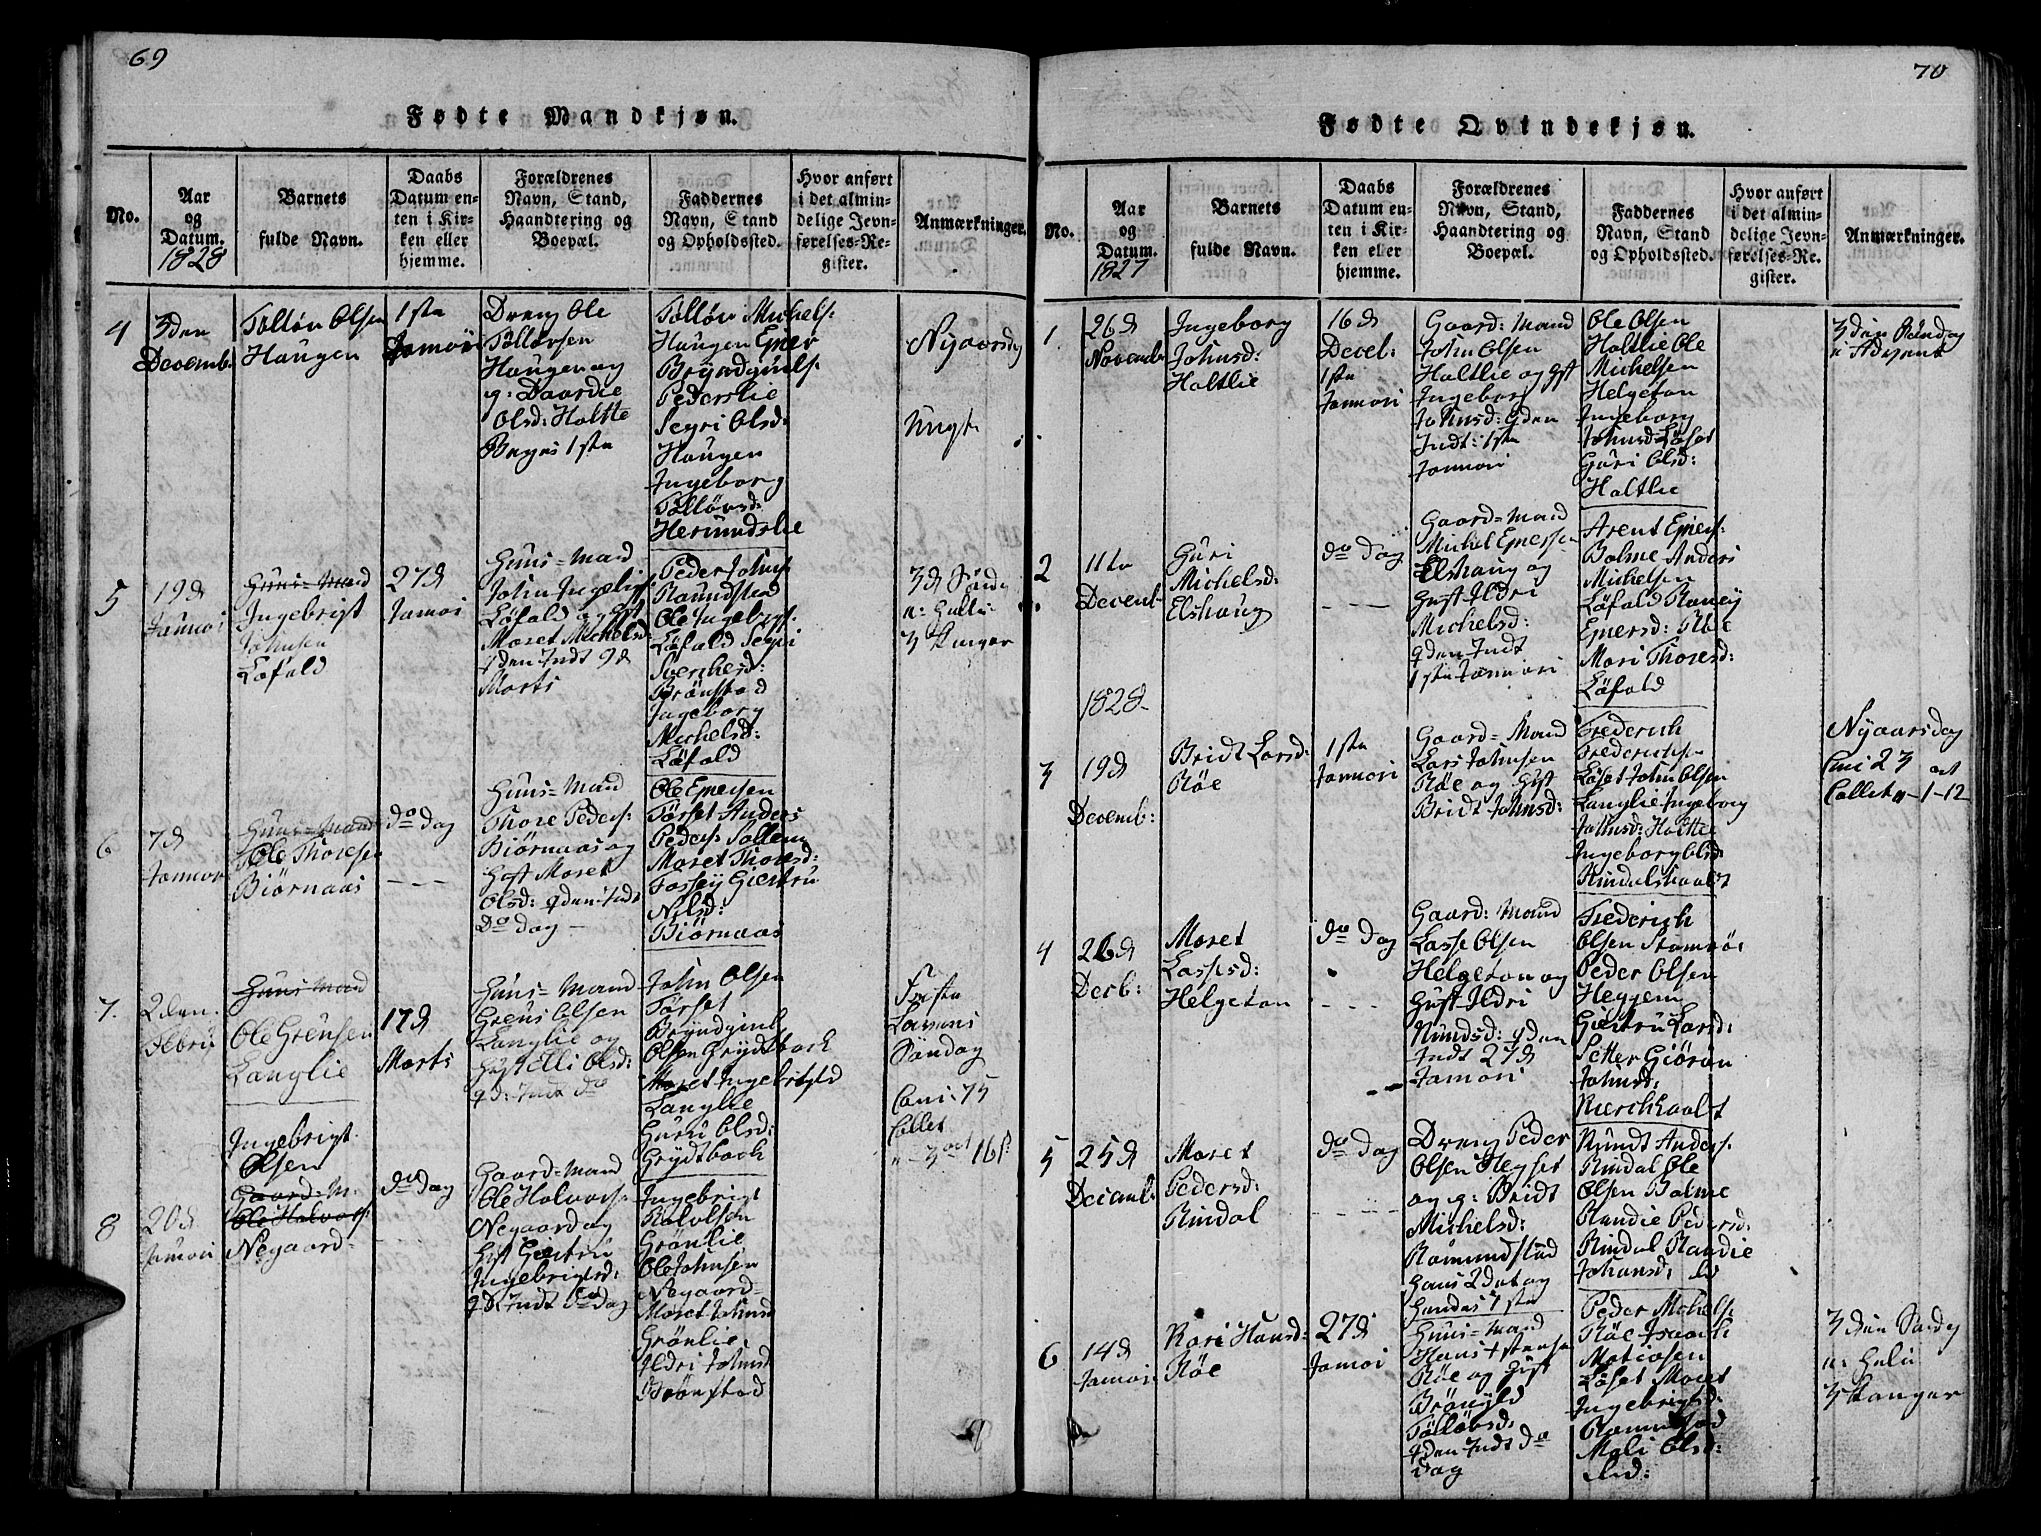 69
Fødte Mandkjøn.
No.
Aar og Datum.
1828
Barnets fulde Navn.
Daabs Datum enten i Kirken eller hjemme.
Forældrenes Navn, Stand, Haandtering og Boepæl.
Faddernes Navn, Stand og Opholdssted.
Hvor anført i det almindelige Jevnførelses-Register.
Anmærkninger.
4
3den
Decemb:
Tølløv Olsen
Haugen
1ste
Januari
Dreng Ole
Tølløvsen
Haugen og
g: Daardie
Olsd: Holtte
Beges 1ste
Tølløv Michels:
Haugen Ener
Bryndgiuls:
Pederslie
Segri Olsd:
Haugen
Ingeborg
Tølløvsd:
Herumdslie
Nyaarsdag
5
19d
Januari
Huus-Mand
Ingebrigt
Johnsen
Løfald
27d
Huus-Mand
Løfald og Gst
Maret Michelsd:
9den Indt 9d
Marts
Peder Johns:
Romundstad
Ole Ingebrgt:
Løfald Segri
Sverchesd:
Brønstad
Ingeborg
Michelsd:
Løfald
3d Sønda
6
7d
Huus-Mand
Ole Thoresen
Biørnaas
do Dag
Huus-Mand
Thore Peders:
Biørnaas og
Gst Maret
Olsd: 9den Indt
Do Dag
Ole Enersen
Tørset Anders
Peders: Sollem
Maret Thoresd:
Fossey Giertru
Nilsd:
Biørnaas
7.
2den
Febru
Huus-Mand
Ole Grensen
Langlie
17d
Marts
Huus-Mand
Grens Olsen
Langlie og
Gust Elli Olsd:
9d: Indt do
John Olsen
Tørset
Bryndgiul
Olsen Grydtbach
Maret Ingebrigtd
Langlie
Guru Olsd:
Grydtbach
Søndag
Comi: 75
Collet
8
20d
Januari
Ingebrigt
Olsen
Gaard-M.
Ole Halvors:
Negaard
do Dag
Gaard-Mand
Ole Halvors:
Negaard og
Gst Giertru
Ingebrigtsd:
9d Indt do Dag
Ingebrigt
Halvolsen
Grønlie
Ole Johnsen
Negaard
Maret Johnsd
Grønlie
Ildri Johnsd
Brønstad
70
Fødte Qvindekjøn.
No.
Aar og Datum.
1827
Barnets fulde Navn.
Daabs Datum enten i Kirken eller hjemme.
Forældrenes Navn, Stand, Haandtering og Boepæl.
Faddernes Navn, Stand og Opholdssted.
Hvor anført i det almindelige Jevnførelses-Register.
Anmærkninger.
1.
26d
Novemb
Ingeborg
Johnsd:
Holtlie
16d
Decel:
1ste
Januari
Gaard: Mand
John Olsen
Holtlie og Gst
Ingeborg
Johnsd: 9den
Indt: 1ste
Januari
Ole Olsen
Holtlie Ole
Michelsen
Helgeton
Ingeborg
Johnsd: Løset
Guri Olsd:
Holtlie
3den Søndag
i Advent
2
11te
Decemb
Guri
Michelsd:
Elshaug
do Dag
Gaard-Mand
Michel Enersen
Elshaug og
Gust Ildri
Michelsd:
9den Indt
1ste Januari
Arent Eners:
Bolme Anders
Michelsen
Løfald Raney
Enersd:
Mari Thoresd:
Løfald
1828
3
19d
Decemb:
Bridt Larsd:
Røe
1ste
Januari
Gaard-Mand
Lars Johnsen
Røe og Gst
Bridt Johnsd:
Frederich
Frederichs:
Løset John Olsen
Langlie Ingeborg
Johnsd: Holtte
Ingeborg Olsd:
Rindalskaalt
Nyaarsdag
Comi 23
Collet 1-12
4
26d
Decb:
Maret
Lassesd:
Helgeton
do Dag
Gaard: Mand
Lasse Olsen
Helgeton og
Gust Ildri
Nundsd: 9den
Indt 27d
Januari
Frederich
Olsen
Peder Olsen
Heggem
Giertru Larsd:
Setter Giørøn
Johnsd:
5
25d
Decemb:
Maret
Pedersd:
Rindal
do Dag
Dreng Peder
Olsen Heyset
og g: Bridt
Michelsd:
Romundstad
Hans 2det og
Hendes 1ste
Knudt Anders:
Rindal Ole
Olsen Bolme
Randie Pedersd:
Rindal Randie
Johansd:
6
14d
Januari
Kari Hansd:
Røe
27d
Januari
Huus-Mand
Røe og Gust
Brøngld
Tølløvsd:
9den Indt do
Dag
Peder Michels:
Røe Isaach
Matiasen
Løset Maret
Ingebrigtsd:
Romundstad
Mali Olsd:
3den Søndag